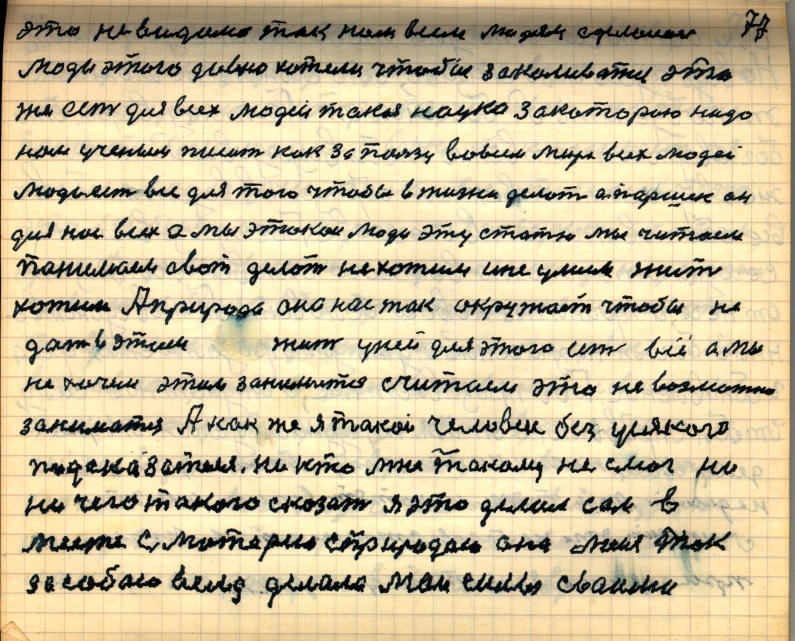 77
это не видимо так нам всем людям сделоном
люди этого давно хотели чтобы закаливатця это
же ест для всех людей такая наука за которою надо
нам ученым писат как за паязу во всем мире всех людей
люды ест все для того чтобы в жизни делат а паршек он
для нас всех а мы этакои люди эту статю мы читаем
панимаем свои делат не хотим и не умием жит
хотим А природа она нас так окружаит чтобы не
дат в этим жит у ней для этого ест всё а мы
не хочем этим заниматся считаем это не возможно
заниматя А как же я такои человек без усякого
подсказателя. ни кто мне такому не смог ни
ни чего такого сказат я это делил сам в
месте с матерю с природаю она меня так
за собаю вела делала маи силы сваими